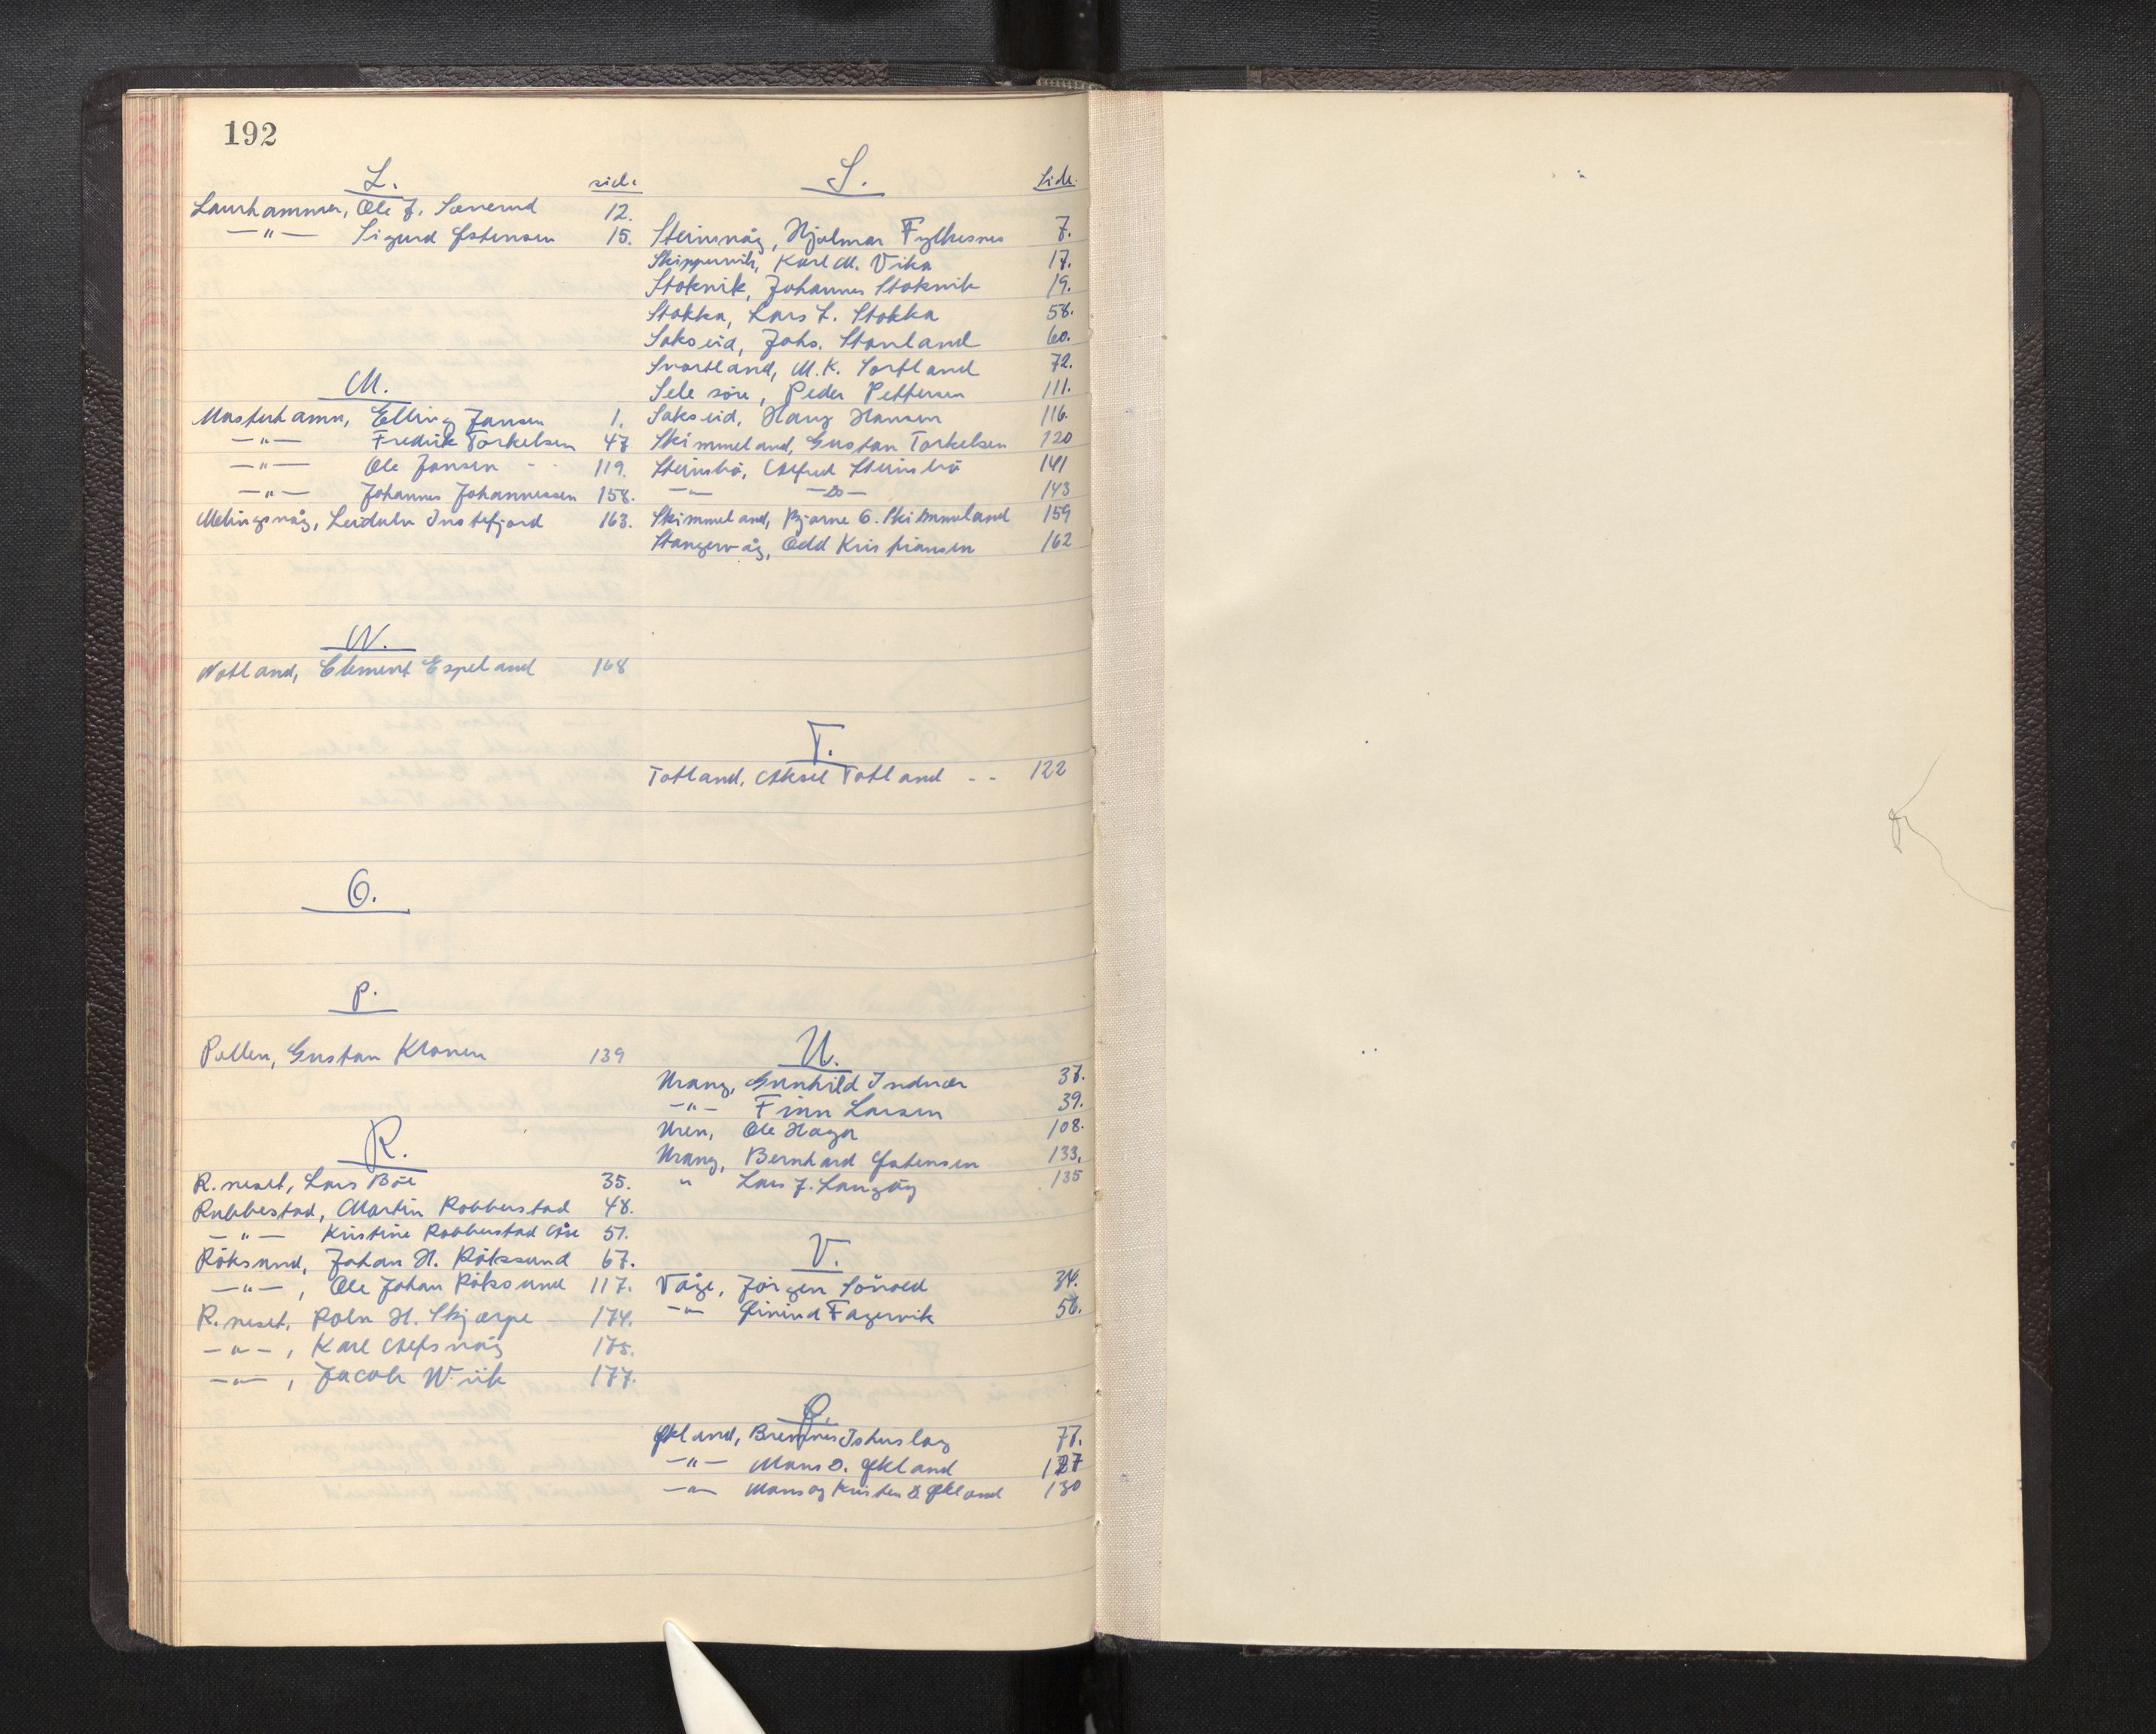 192
L. side
Laurhammer, Ole J. Sæverud 12.
—"— Sigurd Østensen 15.
M.
Mosterhamn, Elling Jansen 1.
—"— Fredrik Torkelsen 47
—"— Ole Jansen - - 119.
—"— Johannes Johannessen 158.
Melingsvåg, Leidulv Instefjord 163.
N.
Notland, Clement Espeland 168
O.
P.
Pollen, Gustav Kronen 139
R.
R.neset, Lars Böe 35.
Rubbestad, Martin Robberstad 48.
—"— Kristine Robberstad Åse 51.
Röksund, Johan H. Röksund 67.
—"—, Ole Johan Röksund 117.
R.neset, Rolv H. Skjærpe 174.
—"—, Karl 175.
—"—, Jacob Wiik 177.
S. Side.
Steinsvåg, Hjalmar Fylkesnes 7.
Skippervik, Karl M. Vika 17.
Stokvik, Johannes Stokvik 19.
Stokka, Lars L. Stokka 58.
Sakseid, Johs. Stavland 60.
Svortland, M. K. Sortland 72.
Sele söre, Peder Pettersen 111.
Sakseid, Haug Hansen 116.
Skimmeland, Gustav Torkelsen 120
Steinsbö, Alfred Steinsbö 141
—"— —Do— 143
Skimmeland, Bjarne G. Skimmeland 159
Stangervåg, Odd Kristiansen 162
T.
Totland, Aksel Totland - - 122
U.
Urang, Gunhild Indvær 37.
—"— Finn Larsen 39.
Uren, Ole Haga 108.
Urang, Bernhard Østensen 133.
" Lars J. Langåg 135
V.
Våge, Jörgen Sörvold 34.
—"— Øivind Fagervik 56.
Ø.
Økland, Bremnes Ishuslag 77.
—"— Mons O. Økland 127
—"— Mons og Kristen O. Økland 130